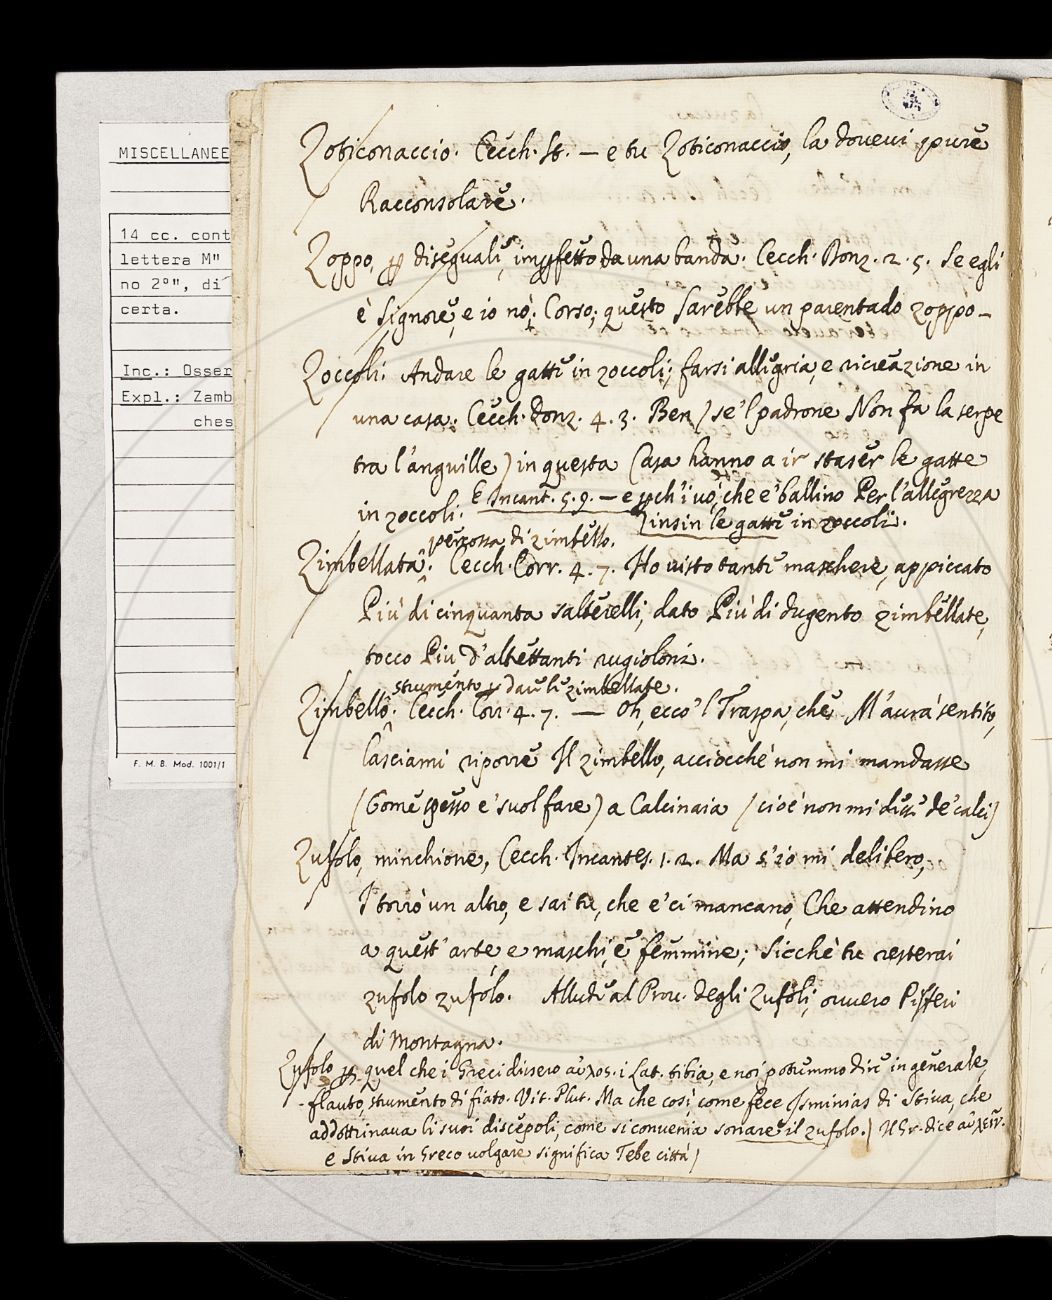 MISCELLANEE
14 cc. cont
lettera M"
no 2°", di
certa.
Inc.: Osser
Expl.: Zamb
ches
F. M. B. Mod. 1001/1
Zoticonaccio. Cecch. St. — e tu Zoticonaccio, la dovevi pure
Racconsolare.
Zoppo, p diseguali, impfetto da una banda. Cecch. Donz. 2. 5. Se egli
è Signore, e io nò; Corso; questo sarebbe un parentado zoppo —
Zoccoli. Andare le gatte in zoccoli; farsi allegria, e ricreazione in
una casa. Cecch. Donz. 4. 3. Ben) se'l padrone Non fa la serpe
tra l'anguille) in questa Casa hanno a ir staser le gatte
in zoccoli. E Incant. 5. 9. — e pch'i vo', che e' ballino Per l'allegrezza
insin le gatte in zoccoli.
percossa di zimbello.
Zimbellata. Cecch. Corr. 4. 7. Ho visto tante maschere, appiccato
Più di cinquanta salterelli, dato Più di dugento zimbellate,
tocco Più d'altettanti rugioloni.
strumento p dar le zimbellate.
Zimbello. Cecch. Corr. 4. 7. — Oh, ecco'l Traspa, che M'aurà sentito,
lasciami riporre Il zimbello, acciocchè non mi mandasse
(Come spesso e' suol fare) a Calcinaia (cioè non mi desse de' calci)
Zufolo, minchione, Cecch. Incantes. 1. 2. Ma s'io mi delibero,
I' torrò un altro, e sai tu, che e' ci mancano, Che attendino
a quest'arte, e maschi, e femmine; sicchè tu resterai
zufolo zufolo. Allude al Prov. degli Zufoli, ovvero Pifferi
di Montagna.
Zufolo p quel che i Greci dissero αὐλος. i Lat. tibia, e noi potremmo dire in generale,
flauto, strumento di fiato. Vit. Plut. Ma che così, come fece Isminias di Stiva, che
addottrinava li suoi discepoli, come si convenia sonare il zufolo.) Il Gr. dice αὐλεῖν.
e Stiva in Greco volgare significa Tebe città)